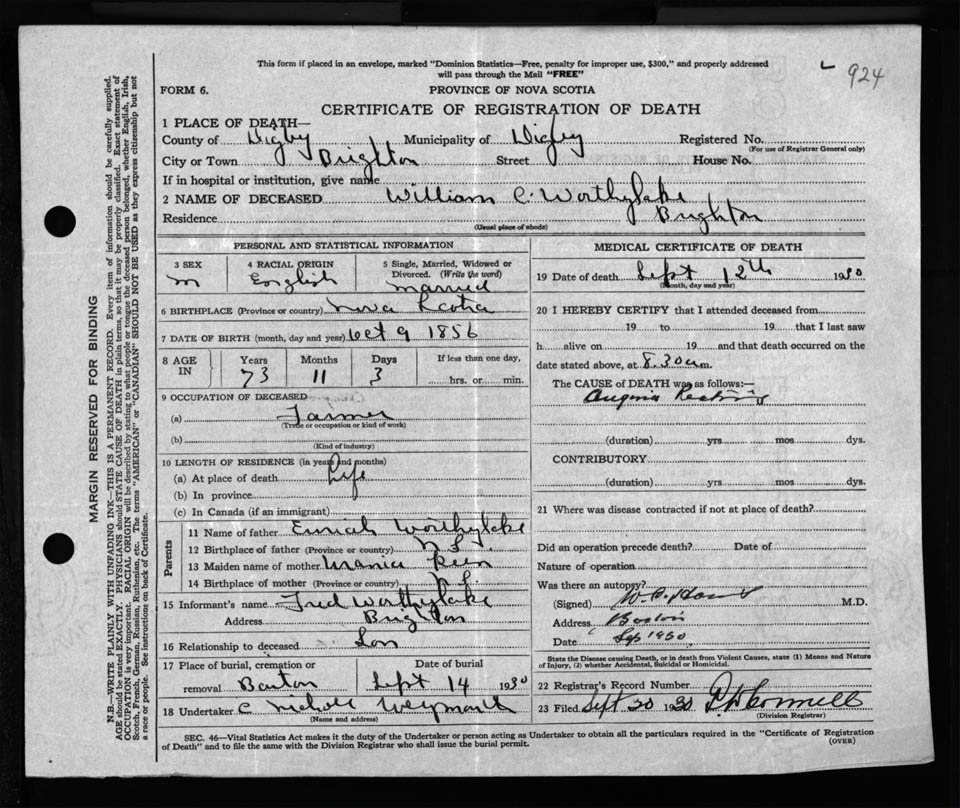 This form if placed in an envelope, marked "Dominion Statistics—Free, penalty for improper use, $300," and properly addressed
will pass through the Mail "FREE"
924
FORM 6.
PROVINCE OF NOVA SCOTIA
CERTIFICATE OF REGISTRATION OF DEATH
1 PLACE OF DEATH—
County of Digby Municipality of Digby Registered No.
(For use of Registrar General only)
City or Town Brighton Street House No.
If in hospital or institution, give name
2 NAME OF DECEASED William C. Worthylake
Residence Brighton
(Usual place of abode)
PERSONAL AND STATISTICAL INFORMATION
3 SEX 4 RACIAL ORIGIN 5 Single, Married, Widowed or
Divorced. (Write the word)
m English married
6 BIRTHPLACE (Province or country) Nova Scotia
7 DATE OF BIRTH (month, day and year) Oct 9 1856
8 AGE IN Years Months Days If less than one day,
73 11 3 hrs. or min.
9 OCCUPATION OF DECEASED
(a) Farmer
(Trade or occupation or kind of work)
(b)
(Kind of industry)
10 LENGTH OF RESIDENCE (in years and months)
(a) At place of death Life
(b) In province
(c) In Canada (if an immigrant)
Parents
11 Name of father Worthylake
12 Birthplace of father (Province or country) N S.
13 Maiden name of mother
14 Birthplace of mother (Province or country) N S.
15 Informant's name Fred Worthylake
Address Brighton
16 Relationship to deceased Son
17 Place of burial, cremation or Date of burial
removal Barton Sept 14 1930
18 Undertaker C Weymouth
(Name and address)
MEDICAL CERTIFICATE OF DEATH
19 Date of death Sept 12th 1930
(Month, day and year)
20 I HEREBY CERTIFY that I attended deceased from
19 to 19 that I last saw
h alive on 19 and that death occurred on the
date stated above, at 8.30 a.m.
The CAUSE OF DEATH was as follows:—
Angina Pectoris
(duration) yrs mos dys.
CONTRIBUTORY
(duration) yrs. mos. dys.
21 Where was disease contracted if not at place of death?
Did an operation precede death? Date of
Nature of operation
Was there an autopsy?
(Signed) M.D.
Address
Date Sep 1930
State the Disease causing Death, or in death from Violent Causes, state (1) Means and Nature
of Injury, (2) whether Accidental, Suicidal or Homicidal.
22 Registrar's Record Number
23 Filed Sept 20 1930
(Division Registrar)
SEC. 46—Vital Statistics Act makes it the duty of the Undertaker or person acting as Undertaker to obtain all the particulars required in the "Certificate of Registration
of Death" and to file the same with the Division Registrar who shall issue the burial permit.
(OVER)
MARGIN RESERVED FOR BINDING
N.B.—WRITE PLAINLY WITH UNFADING INK—THIS IS A PERMANENT RECORD. Every item of information should be carefully supplied.
AGE should be stated EXACTLY. PHYSICIANS should STATE CAUSE OF DEATH in plain terms, so that it may be properly classified. Exact statement of
OCCUPATION is very important. RACIAL ORIGIN will be described by stating to what people or tongue the deceased person belonged, whether English, Irish,
Scotch, French, German, Russian, Ruthenian, etc. The terms "AMERICAN" or "CANADIAN" SHOULD NOT BE USED as they express citizenship but not
a race or people. See instructions on back of Certificate.